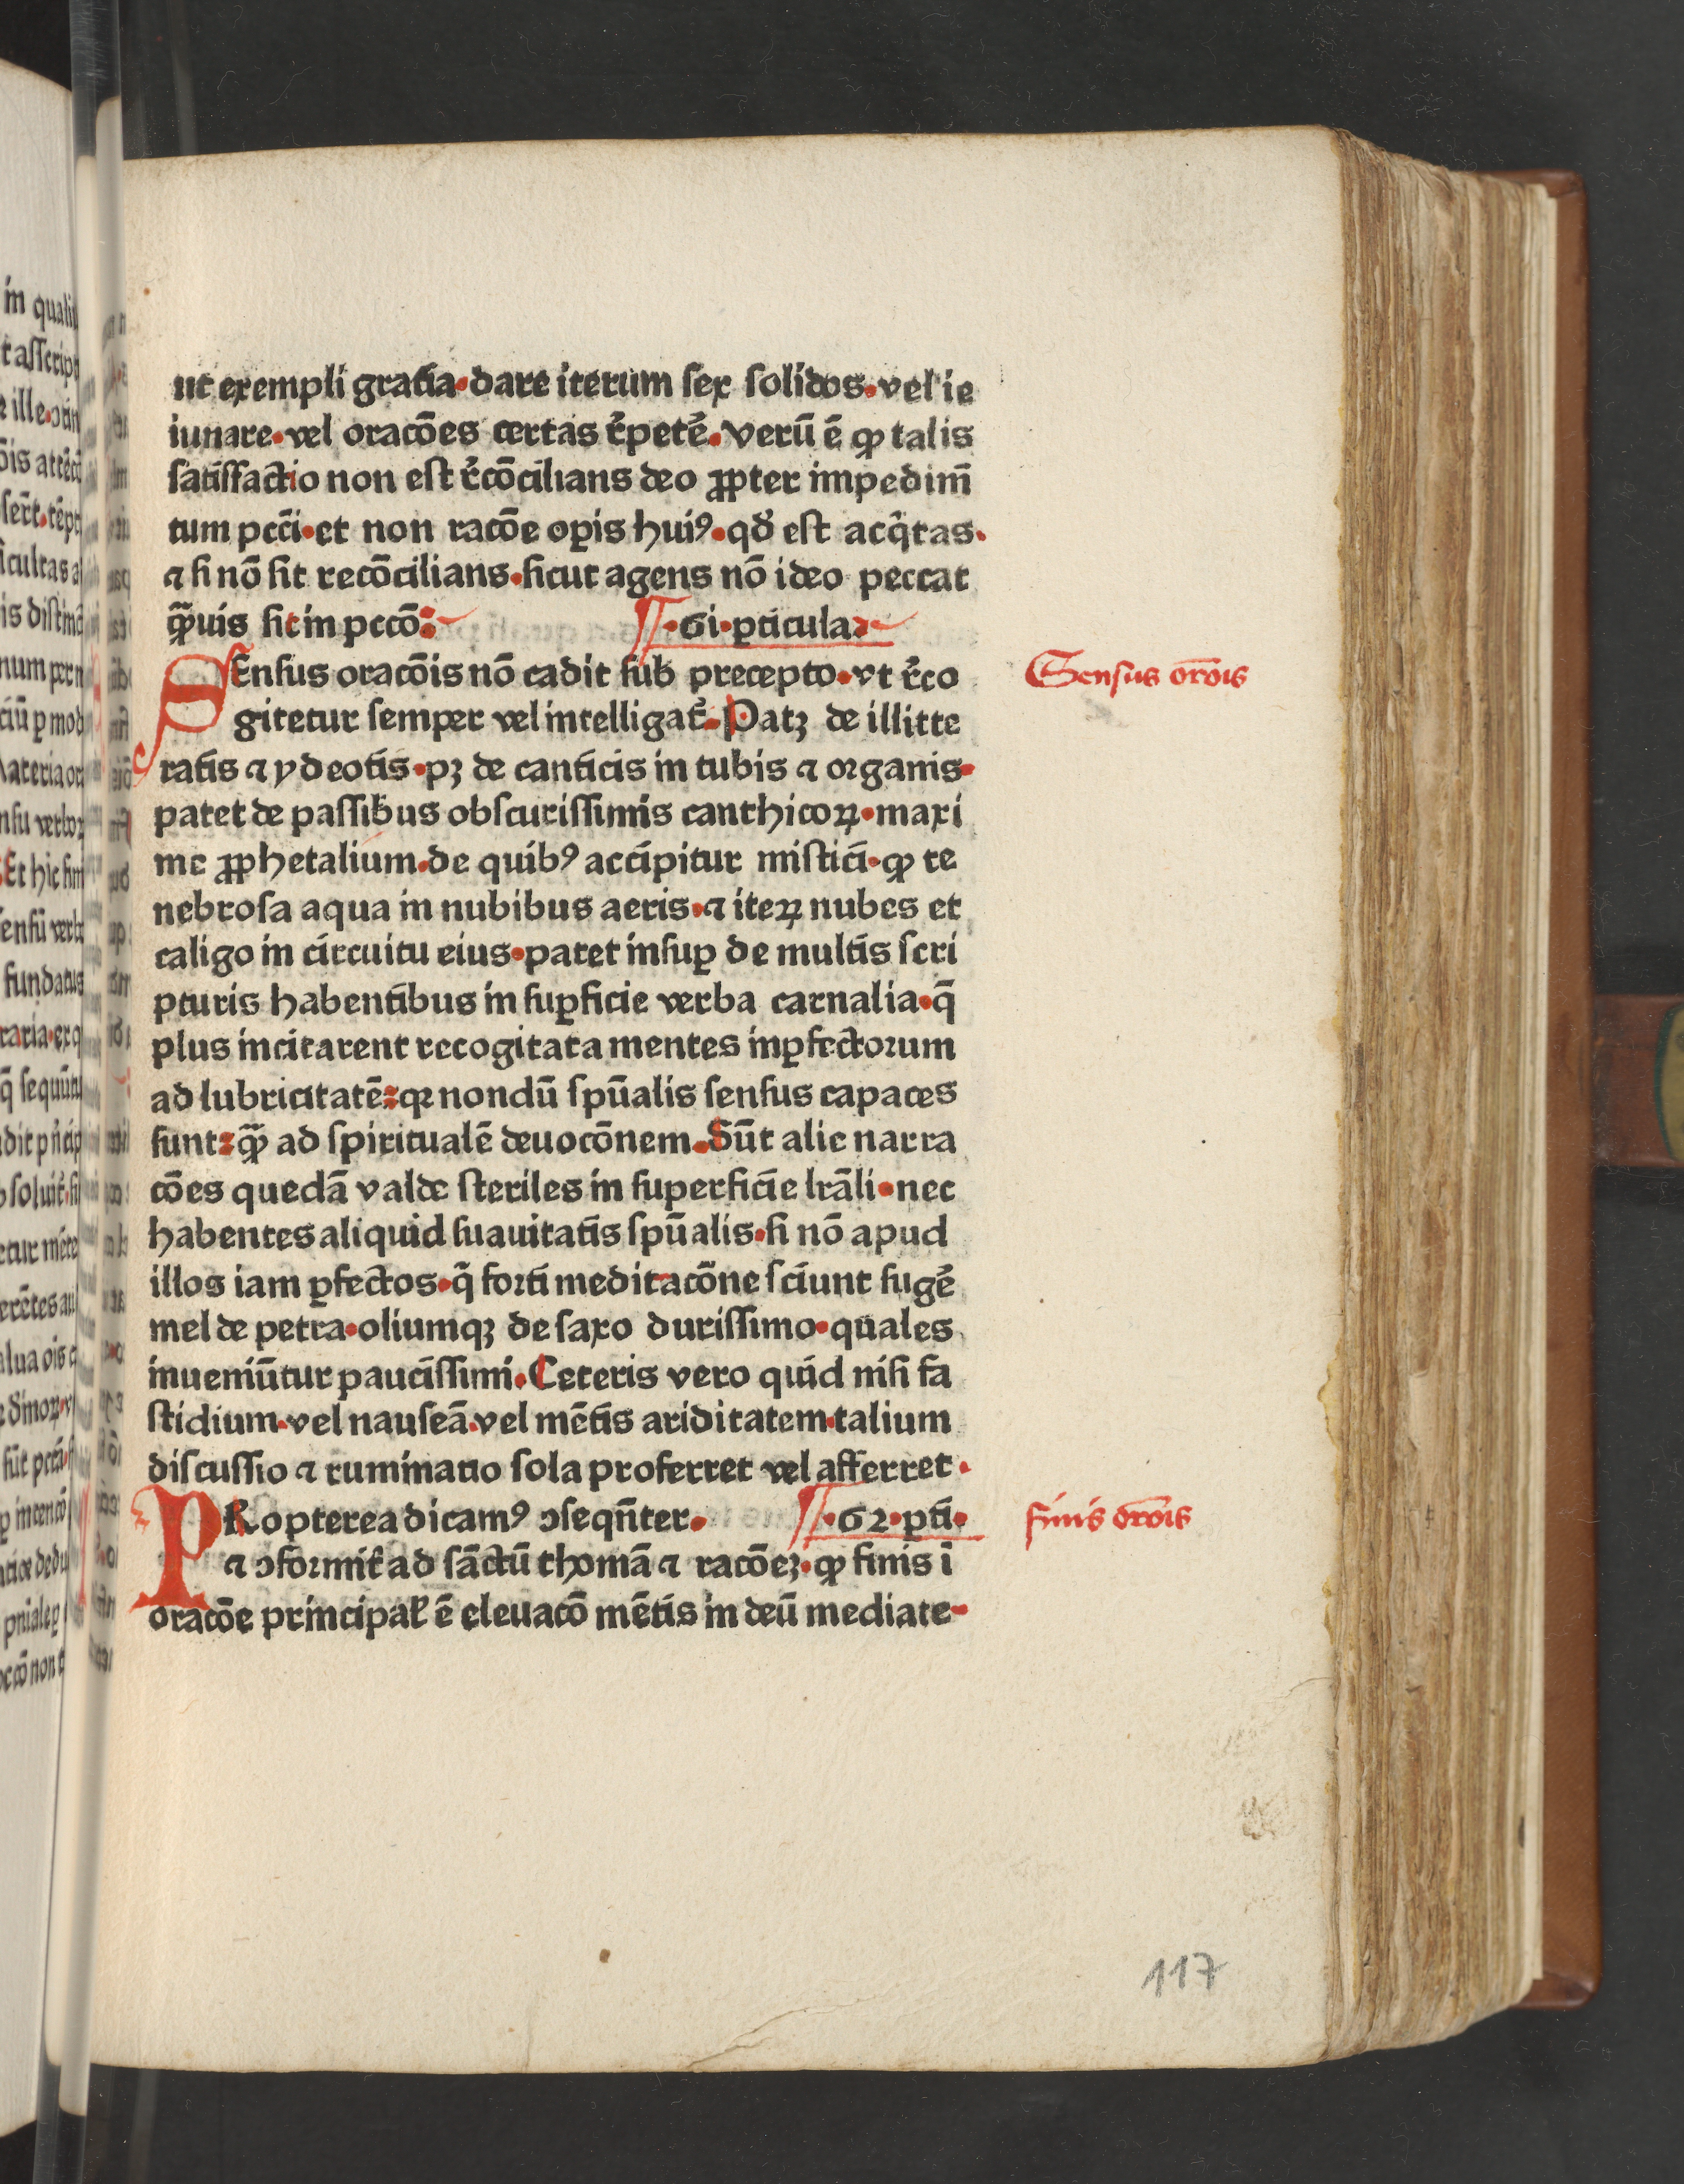 ut exempli gratia·dare iterum sex solidos·vel ie
iunare·vel oracões certas r̃petẽ.verũ ẽ ꝙ talis
satisfactio non est r̃cõcilians deo ꝓpter impedim̃
tum pcc̃i·et non racõe oꝑis huiꝰ·qð est acq̃tas·
⁊ si nõ sit recõcilians·sicut agens nõ ideo peccat
q̃uis sit in pccõ:
·61·ꝑticula·
SEnsus oracõis nõ cadit sub precepto·vt r̃co
gitetur semper vel intelligat̃·Patꝫ de illitte
ratis ⁊ ydeotis·pꝫ de canticis in tubis ⁊ organis·
patet de passibus obscurissimis canthicoꝝ·maxi
me ꝓphetalium·de quibꝰ accipitur mistici·ꝙ te
nebrosa aqua in nubibus aeris·⁊ iteꝝ nubes et
caligo in circuitu eius·patet insuꝑ de multis scri
pturis habentibus in suꝑficie verba carnalia·q̃
plus incitarent recogitata mentes inꝑfectorum
ad lubricitatẽ:qꝛ nondũ spũalis sensus capaces
sunt:q̃ ad spiritualẽ deuocõnem.Sũt alie narra
cões quedã valde steriles in superficie lrãli·nec
habentes aliquid suauitatis spũalis·si nõ apud
illos iam ꝑfectos·q̃ forti meditacõne sciunt sugẽ
mel de petra·oliumqꝫ de saxo durissimo·quales
inueniũtur paucissimi.Ceteris vero quid nisi fa
stidium·vel nauseã·vel mẽtis ariditatem·talium
discussio ⁊ ruminatio sola proferret vel afferret·
PRopterea dicamꝰ ɔseqñter. ·62·ꝑti·
⁊ ɔformit̃ ad sãctũ thomã ⁊ racõeꝫ·ꝙ finis ĩ
oracõe principal̃ ẽ eleuacõ mẽtis in deũ mediate
Sensus orõis
finis orõis
117